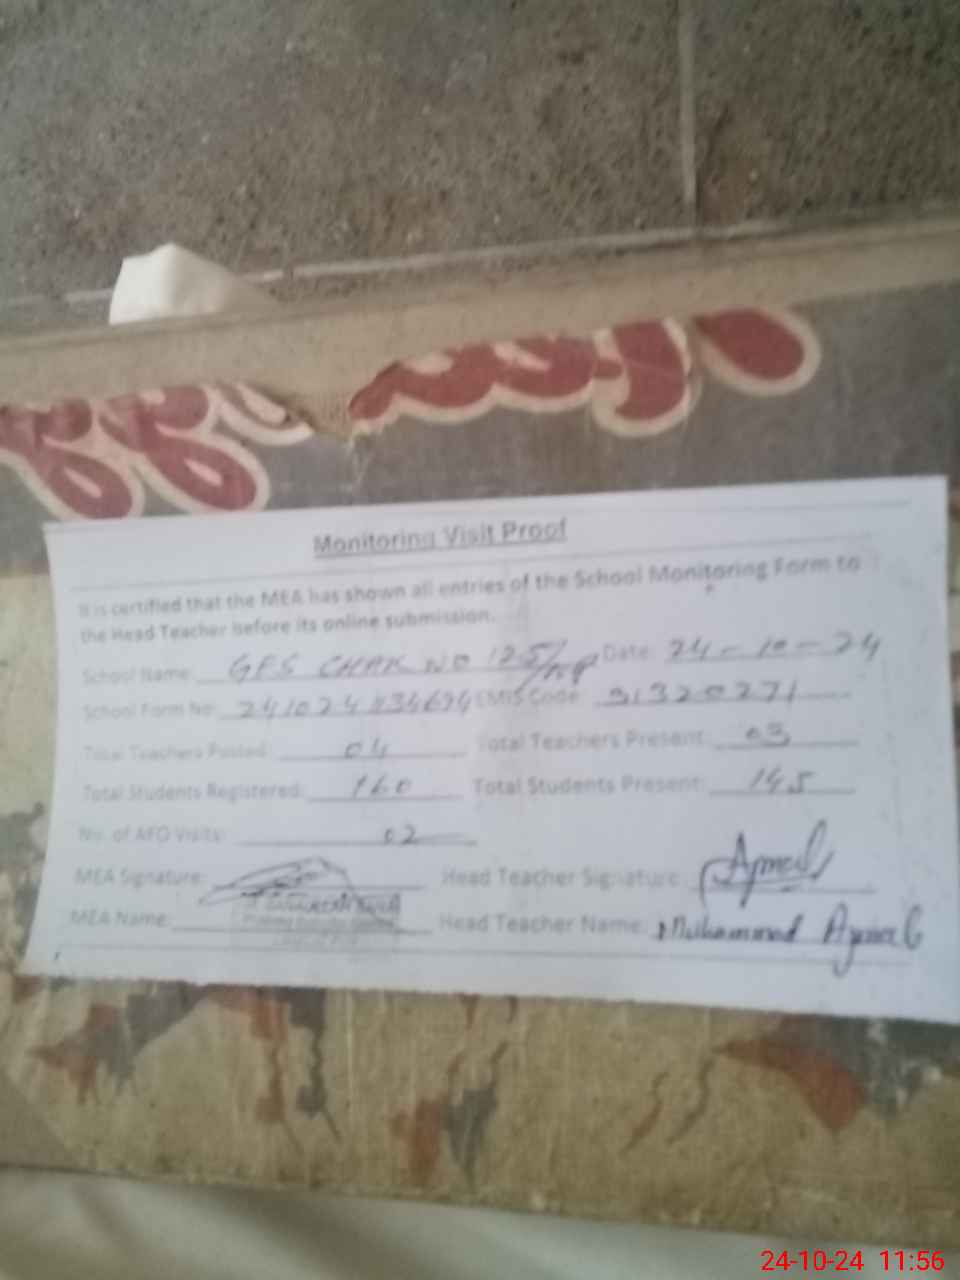 Monitoring Visit Proof
It is certified that the MEA has shown all entries of the School Monitoring Form to
the Head Teacher before its online submission.
School Name: GES CHAK NO 125/NP Date: 24-10-24
School Form No: EMIS Code: 31320271
Total Teachers Posted: 04 Total Teachers Present: 03
Total Students Registered: 160 Total Students Present: 145
No. of AEO Visits: 02
MEA Signature: Head Teacher Signature: Ajmal
MEA Name: Head Teacher Name: Muhammad Ajmal
24-10-24 11:56